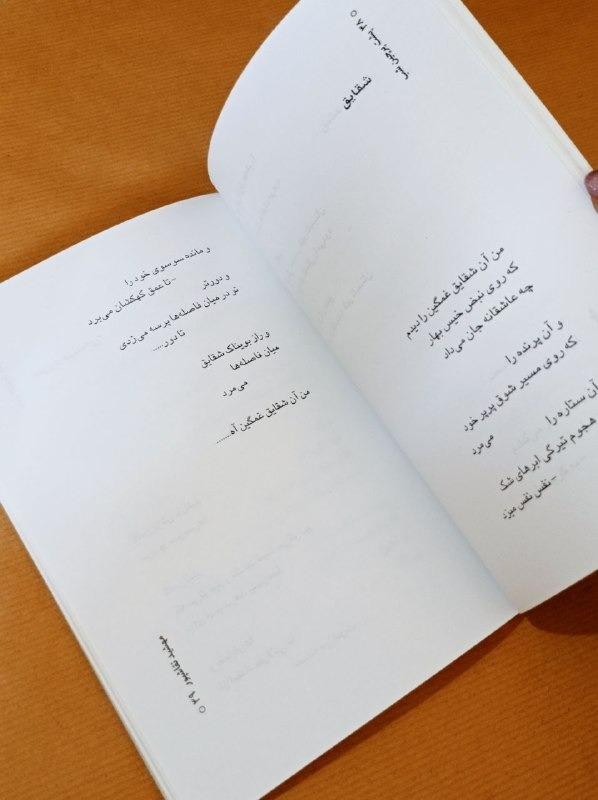 شقایق
من آن شقایق غمگین را دیدم
که روی نبض خیس بهار
چه عاشقانه جان می‌داد
و آن پرنده را
که روی مسیر شوق پرپر خود
می‌مرد
آن ستاره را
هجوم تیرگی ابرهای شک
- نفس نفس میزد
و مانده سوسوی خود را
- تا عمق کهکشان می‌برد
و دورتر
تو در میان فاصله‌ها پرسه می‌زدی
تا دور.....
و راز بویناک شقایق
میان فاصله‌ها
می‌مرد
من آن شقایق غمگین آه......
مهشید نقاشپور ۳۹